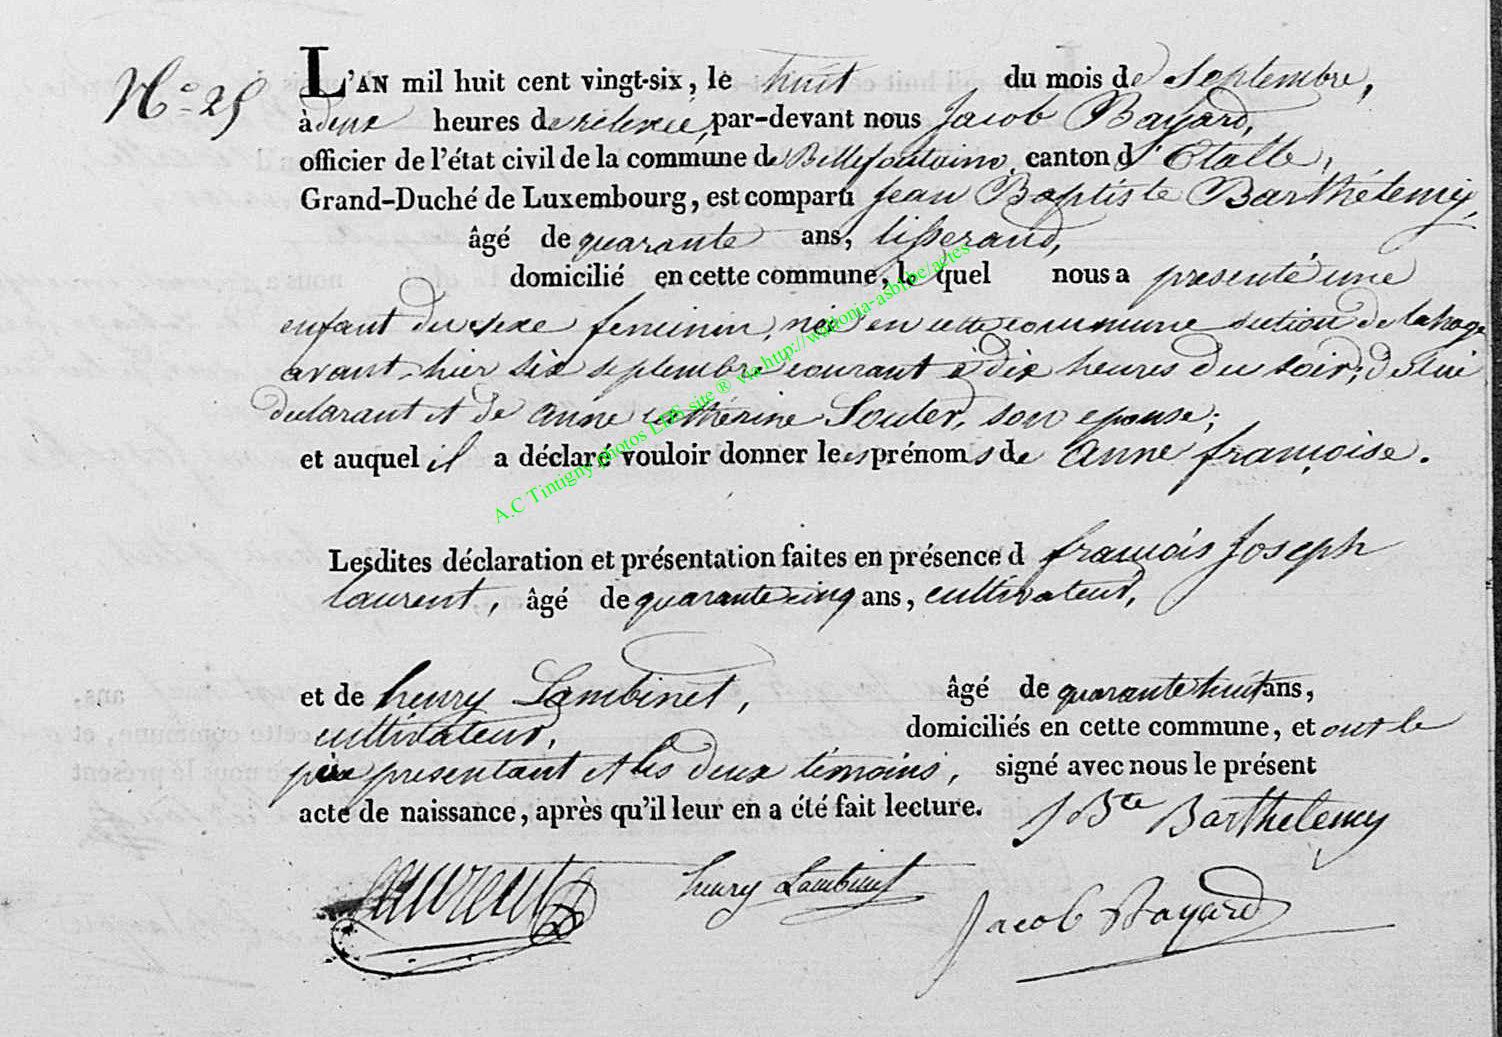 N.o 25
L'AN mil huit cent vingt-six, le huit du mois de septembre,
à deux heures de relevée, par-devant nous Jacob Bayard,
officier de l'état civil de la commune de Bellefontaine, canton d'Etalle,
Grand-Duché de Luxembourg, est comparu Jean Baptiste Barthélemy,
âgé de quarante ans, tisserand,
domicilié en cette commune, le quel nous a presenté une
enfant du sexe feminin, née en cette commune section de lahage
avant-hier six septembre courant à dix heures du soir, de lui
declarant et de anne catherine Souler, son epouse;
et auquel il a déclaré vouloir donner les prénoms de Anne françoise.
Lesdites déclaration et présentation faites en présence d françois Joseph
laurent, âgé de quarante cinq ans, cultivateur,
et de henry Lambinet, âgé de quarante huit ans,
cultivateur, domiciliés en cette commune, et ont le
père presentant et les deux témoins, signé avec nous le présent
acte de naissance, après qu'il leur en a été fait lecture.
J Bte Barthelemy
Laurent henry Lambinet Jacob Bayard
A.C Tintigny photos LDS site ® via http://wallonia-asbl.be/actes